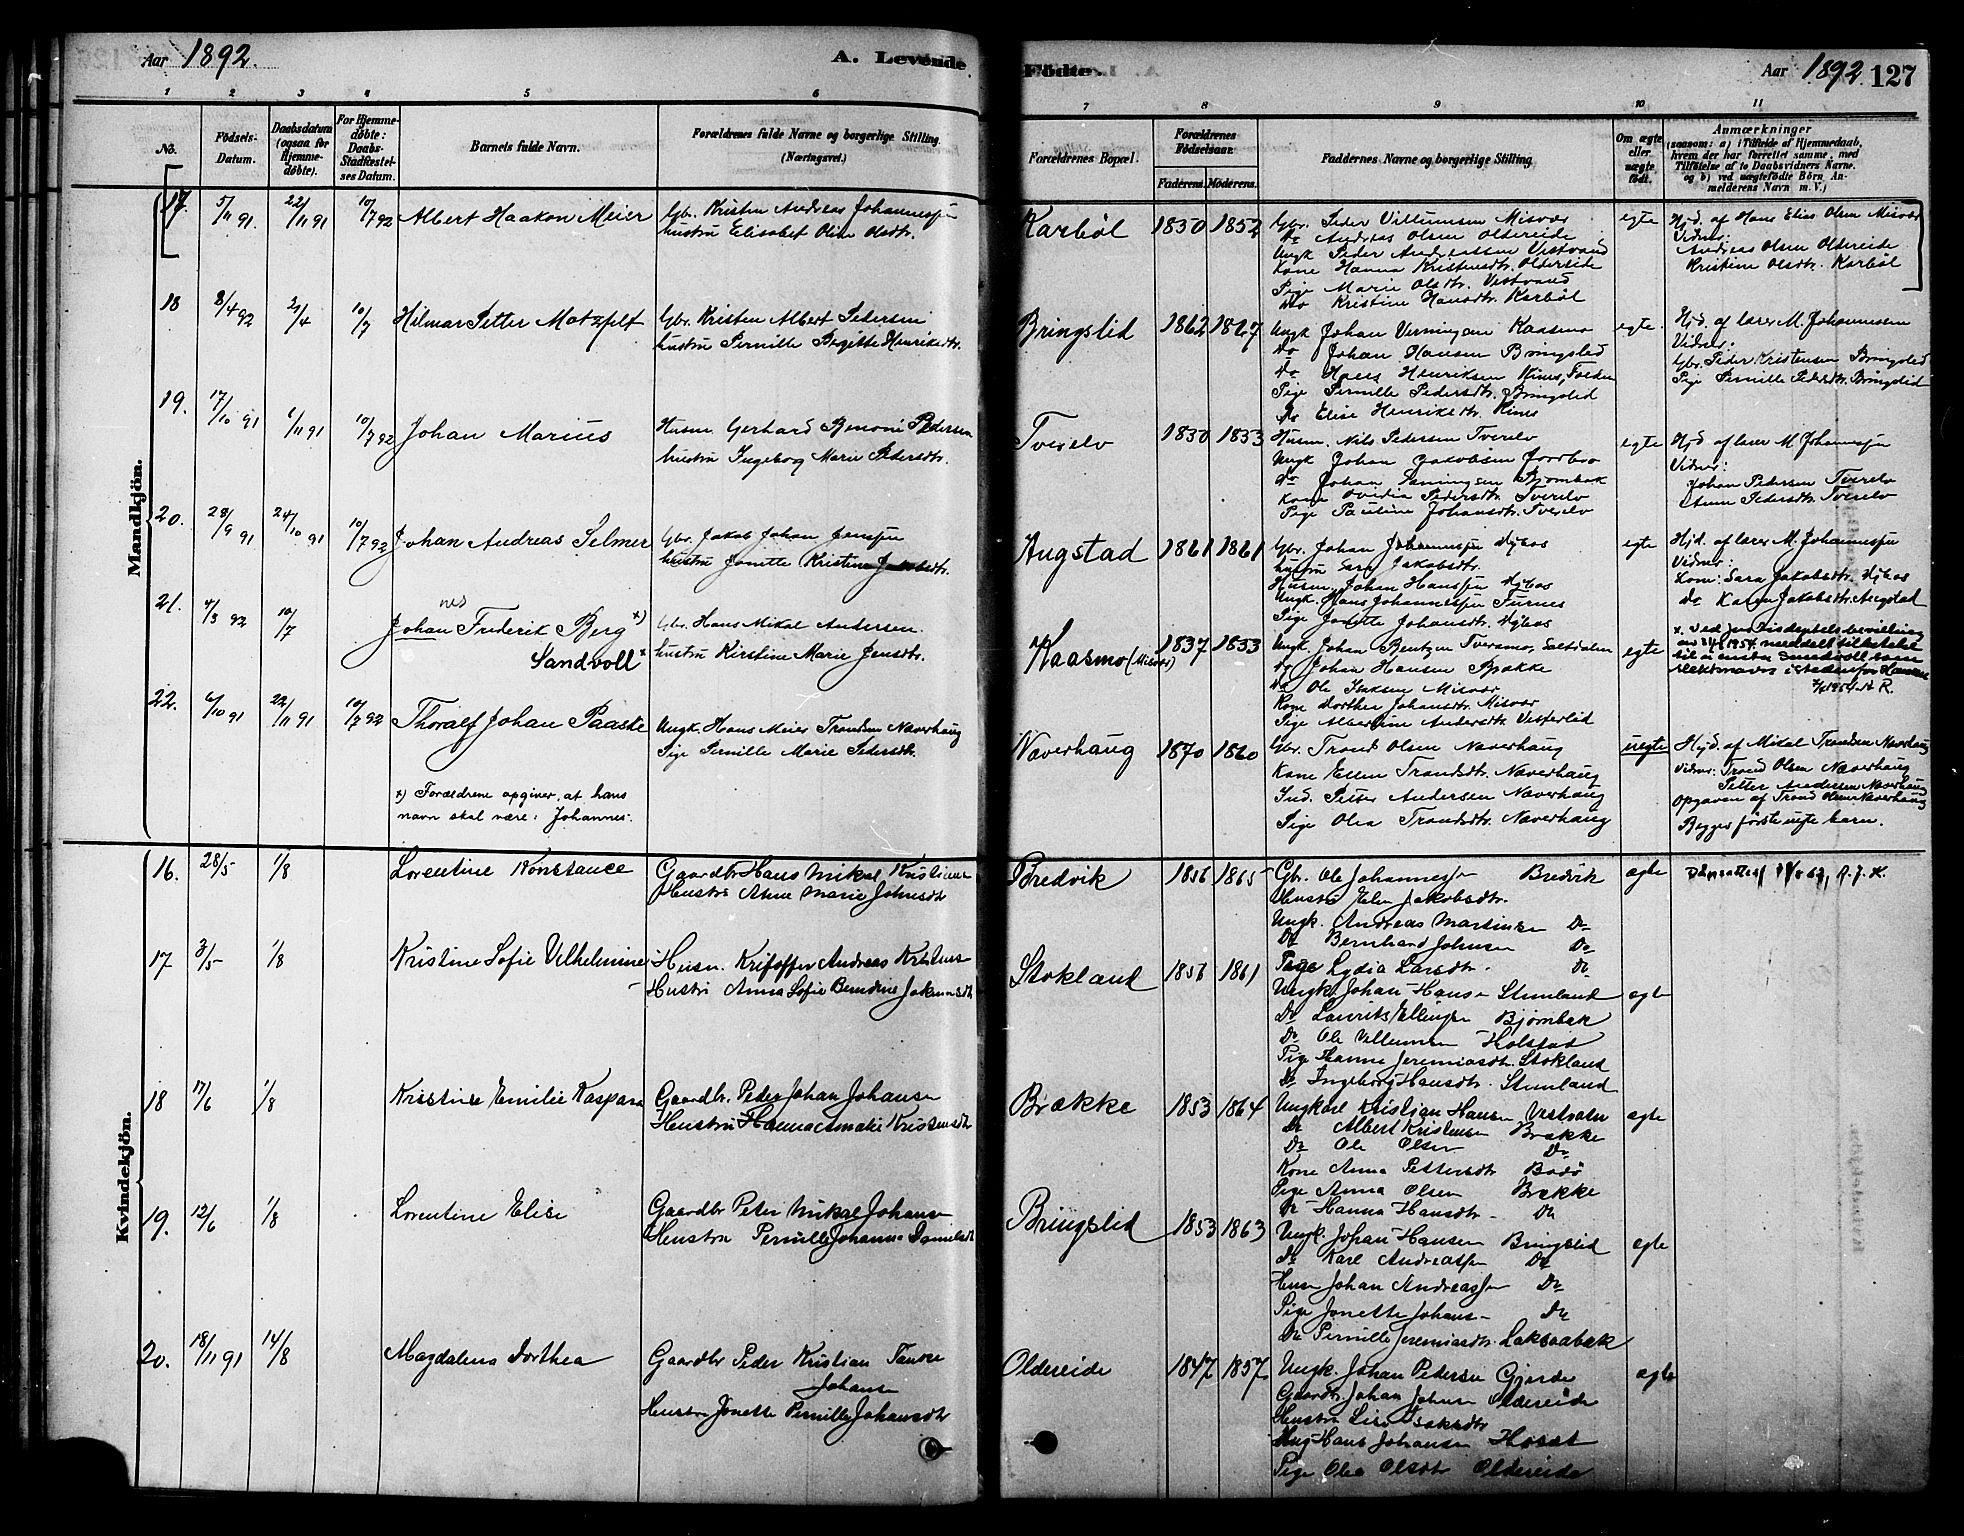 Aar 1892.
A. Levende
Fødte.
Aar 1892
127
1 2 3 4 5 6 7 8 9 10 11
No.
Fødsels-Datum.
Daabsdatum (ogsaa for Hjemmedøbte).
For Hjemmedøbte: Daabs-Stadfæstelses Datum.
Barnets fulde Navn.
Forældrenes fulde Navne og borgerlige Stilling. (Næringsvei.)
Forældrenes Bopæl.
Forældrenes Fødselsaar.
Faderens. Moderens.
Faddernes Navne og borgerlige Stilling.
Om ægte eller uægte født.
Anmærkninger
(saasom: a) i Tilfælde af Hjemmedaab, hvem der har forrettet samme, med Tilføielse af to Daabsvidners Navne, og b) ved uægtefødte Børn, Anmelderens Navn m. V.)
Mandkjön.
17. 5/11 91 22/11 91 10/7 92 Albert Haakon Meier
Gbr. Kristen Andreas Johannessen
hustru Elisabet Oline Olsdtr.
Karbøl 1850 1852
Gbr. Peder Villumsen Misvær
Do Andreas Olsen Oldereide
Ungk Peder Andreassen Vestvand
Kone Hanna Kristensdtr. Oldereide
Pige Marie Olsdtr. Vestvand
Do Kristine Hansdtr. Karbøl
egte
Hjd. af Hans Elias Olsen Misvær
Vidner:
Andreas Olsen Oldereide
Kristine Olsdtr. Karbøl
18 8/4 92 2/4 10/7 Hilmar Petter Motzfelt
Gbr. Kristen Albert Pedersen
hustru Pernille Birgitte Henriksdtr.
Bringslid 1862 1867
Ungk Johan Verningsen Kaasmo
Do Johan Hansen Bringslid
Do Hans Henriksen Kines, Folden
Pige Pernille Pedersdtr. Bringslid
Do Elise Henriksdtr. Kines
egte
Hjd. af lærer M. Johannessen
Vidner:
Gbr. Peder Kristensen Bringslid
Pige Pernille Pedersdtr. Bringslid
19. 17/10 91 1/11 91 10/7 92 Johan Marius
Husm. Gerhard Benoni Pedersen
hustru Ingeborg Marie Pedersdtr.
Tverelv 1830 1833
Husm. Nils Pedersen Tverelv
Ungk Johan Jakobsen Jordbro
Do Johan Bjørnbak
Kone Ovidia Pedersdtr. Tverelv
Pige Pauline Johansdtr. Tverelv
egte
Hjd. af lærer M. Johannessen
Vidner:
Johan Pedersen Tverelv
Anne Pedersdtr. Tverelv
20. 28/9 91 24/10 91 10/7 92 Johan Andreas Selmer
Gbr. Jakob Johan Jenssen
hustru Jonette Kristine Jakobsdtr.
Augstad 1861 1861
Gbr. Johan Johannessen Nybos
hustru Sara Jakobsdtr.
Husm. Johan Hanssen Nybos
Ungk. Hans Johannessen Furnes
Pige Jonette Johansdtr. Nybos
egte
Hjd. af lærer M. Johannessen
Vidner:
Kone: Sara Jakobsdtr. Nybos
Do Karen Jakobsdtr. Augstad
21. 4/3 92 10/7
nes
Johan Frederik Berg x)
Sandvoll x
Gbr. Hans Mikal Andersen
hustru Kirstine Marie Jensdtr.
Kaasmo (Misvær) 1837 1853
Ungk. Johan Bentzen Tveramo, Saltdalen
Do Johan Hansen Brække
Do Ole Isaksen Misvær
Kone Dorthea Johansdtr. Misvær
Pige Albertine Andersdtr. Vesterlid
egte
x. Ved Justisdeptets bevilling
av 1954 meddelt tilladelse
til å anta Sandvoll som
slektsnavn i stedenfor Hansen
1954 A. R.
22. 6/10 91 22/11 91 10/7 92 Thoralf Johan Paaske
Ungk. Hans Meier Trondsen Naverhaug
Pige Pernille Marie Pedersdtr.
Naverhaug 1870 1860
Gbr. Trond Olsen Naverhaug
Kone Ellen Trondsdtr. Naverhaug
Ind. Petter Andersen Naverhaug
Pige Olea Trondsdtr. Naverhaug
uegte
Hjd. af Mikal Trondsen Naverhaug
Vidner: Trond Olsen Naverhaug
Petter Andersen Naverhaug
Opgaven af Trond Olsen Naverhaug
Begges første uegte barn.
x) Forældrene opgiver, at hans
navn skal være: Johannes.
Kvindekjön.
16. 28/5 1/8 Lorentine Konstance
Gaardbr Hans Mikal Kristians
Hustru Anne Marie Johnsdt
Bredvik 1856 1865
Gbr. Ole Johannessen Bredvik
Hustru Elen Jakobsdtr.
Ungk. Andreas Martinsen Do
Do Bernhard Johnsen Do
Pige Lydia Larsdtr. Do
ægte
17 3/5 1/8 Kristine Sofie Vilhelmine
Husm. Kristoffer Andreas Kristens
Hustru Anna Sofie Berndine Johannsdtr
Stokland 1856 1861
Ungk Johan Hansen Stemland
Do Laurits Ellingsen Bjørnbak
Do Ole Villumsen Holstad
Pige Hanna Jeremiasdtr. Stokland
Do Ingeborg Hansdtr. Stemland
ægte
18 17/6 1/8 Kristine Emilie Kaspara
Gaardbr. Peder Johan Johansen
Hustru Hanna Amalie Kristensdt
Brække 1853 1864
Ungkarl Kristian Hansen Vestvatn
Do Albert Kristensen Brække
Do Ole Olsen Do
Kone Anna Pettersdtr Bodø
Pige Anna Olsen Brække
Do Hanna Hansdtr. Do
ægte
19. 12/6 1/8 Lorentine Elise
Gaardbr Peter Mikal Johansen
Hustru Pernille Johanna Danielsdt
Bringslid 1853 1863
Ungk. Johan Hansen Bringslid
Do Karl Andreassen Do
Husm Johan Andreassen Do
Pige Jonette Johans Do
Do Pernille Jeremiasdtr. Laksaabak
ægte
20. 18/11 91 14/8 Magdalena Dorthea
Gaardbr Peder Kristian Tanke
Johansen
Hustru Jonette Pernille Johansdtr
Oldereide 1847 1857
Ungk. Johan Pedersen Gjerde
Gaardbr. Johan Johnsen Oldereide
Hustru Lise Isaksdtr
Ung Hans Johansen
Pige Olea Olsdtr Oldereide
ægte